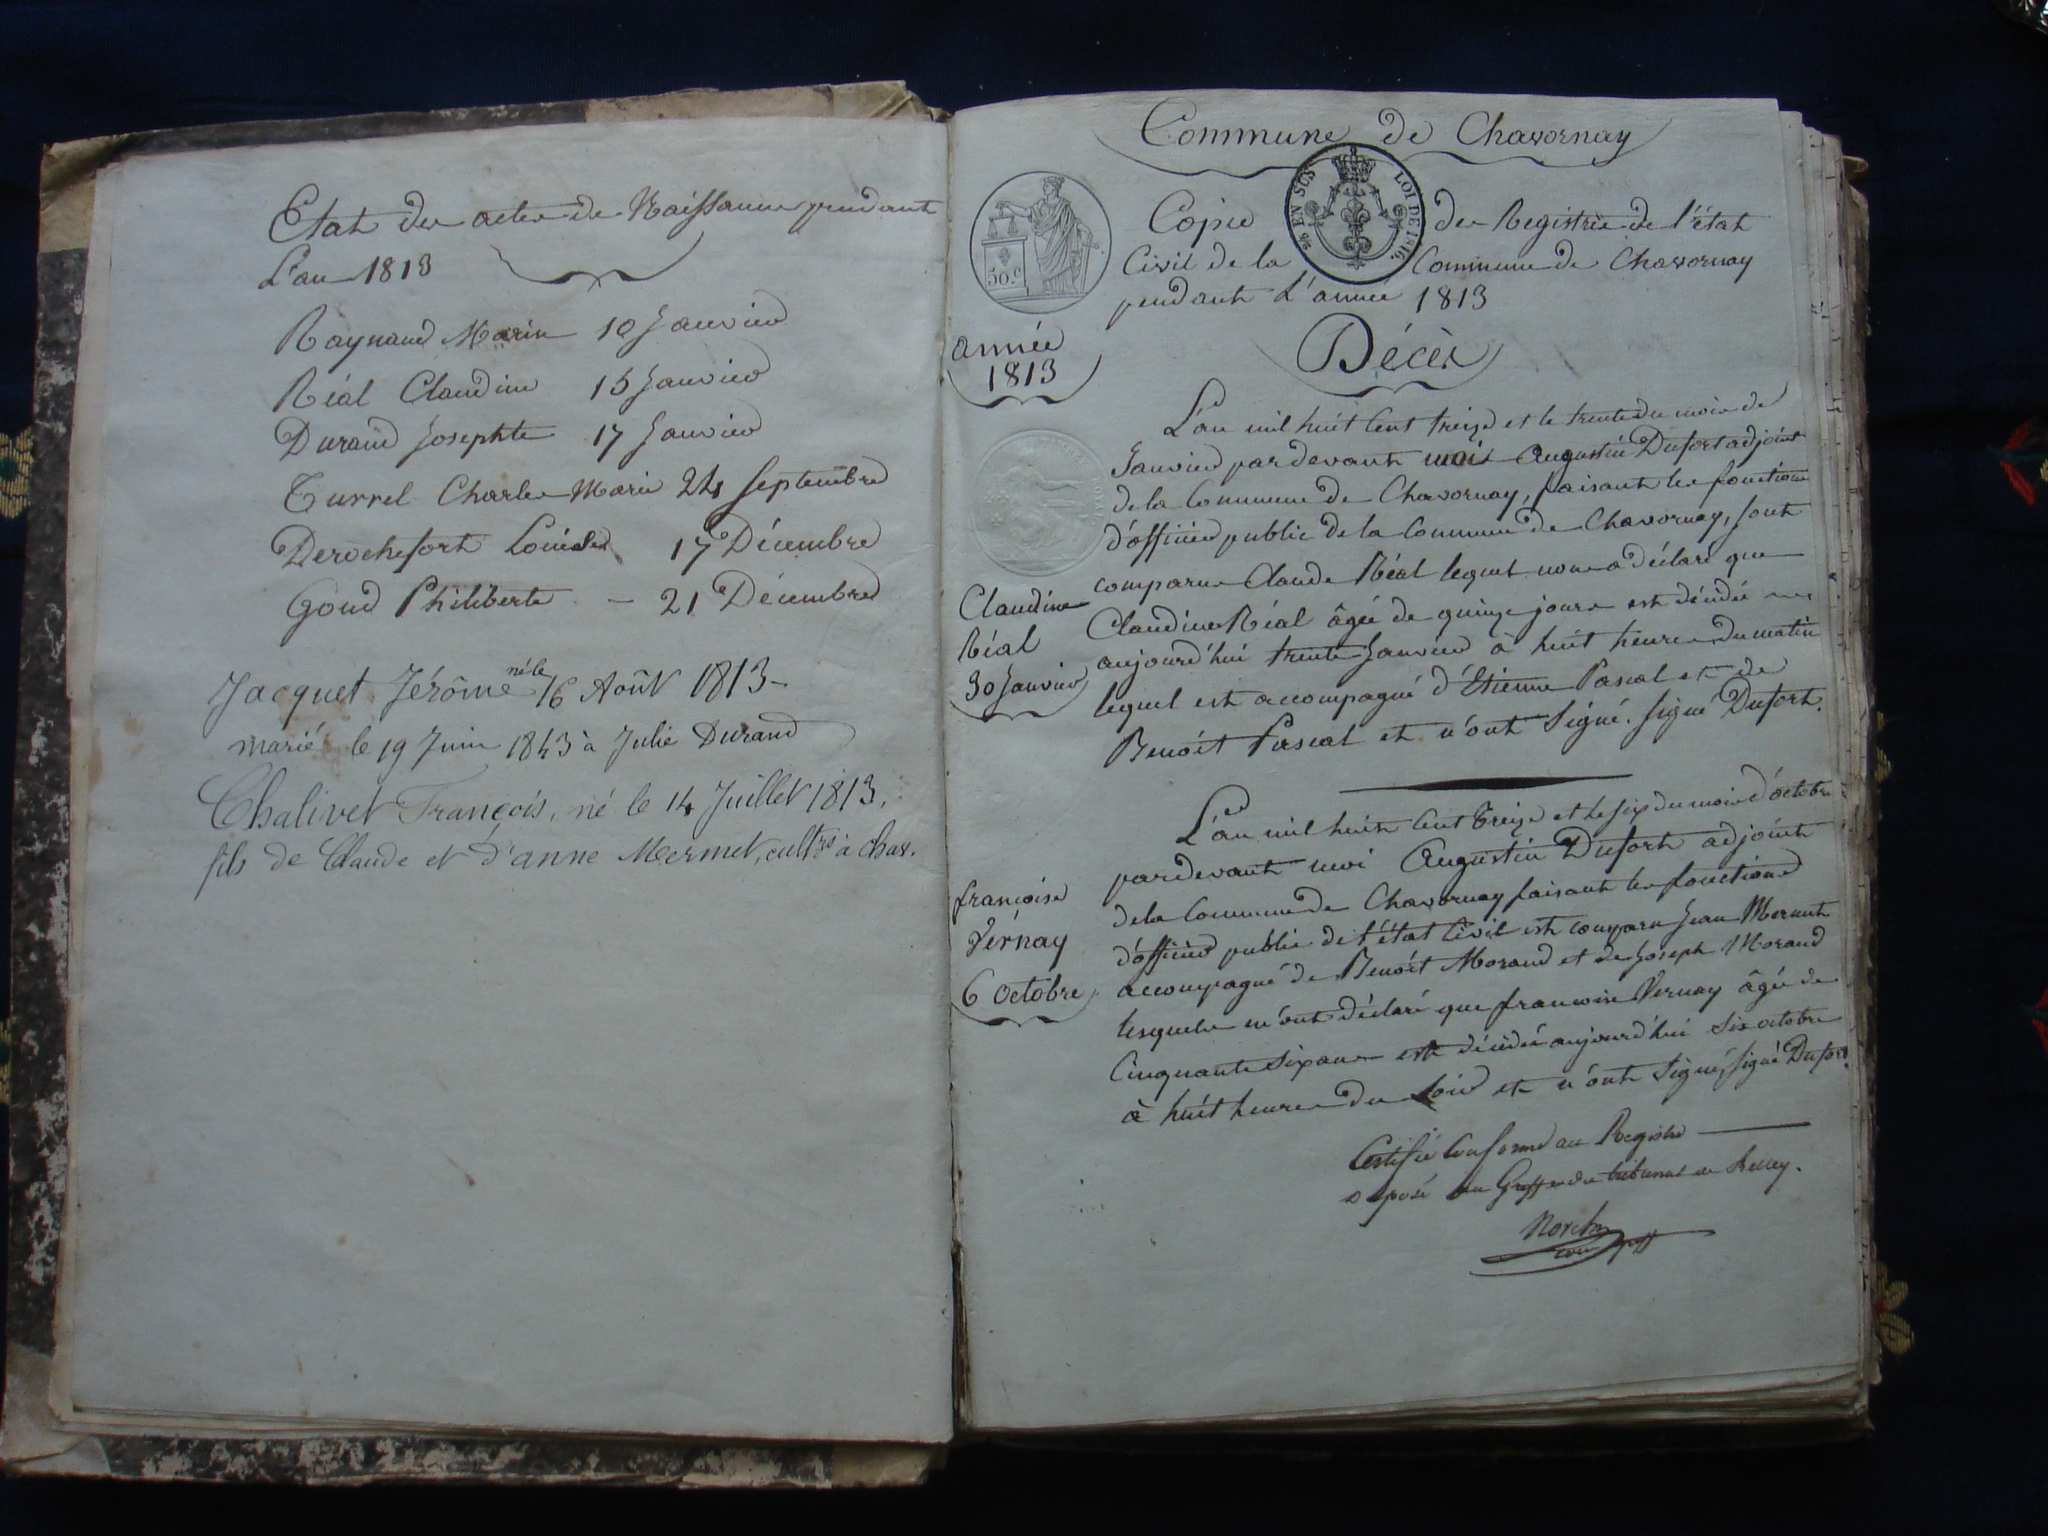 Etat des actes de Naissance pendant
L'an 1813
Raynaud Marin 10 Janvier
Réal Claudine 15 Janvier
Durand Josephte 17 Janvier
Turrel Charles Marie 24 Septembre
Derochefort Louise 17 Décembre
Goud Philiberte - 21 Décembre
Jacquet Jérôme né le 16 Août 1813 -
marié le 19 Juin 1843 à Julie Durand
Chalivet François, né le 14 Juillet 1813,
fils de Claude et d'anne Mermet, cult.rs à Chav.
Commune de Chavornay
50.c
25 EN SUS LOI DE 1816.
Copie des Registres de l'état
Civil de la Commune de Chavornay
pendant L'année 1813
année
1813
Décès
Claudine
Réal
30 Janvier
L'an mil huit Cent treize et le trente du mois de
Janvier pardevant moi Augustin Dufort adjoint
de la Commune de Chavornay, faisant les fonctions
d'officier public de la Commune de Chavornay, sont
comparus Claude Réal lequel nous a déclaré que
Claudine Réal âgée de quinze jours est décédée
aujourd'hui trente Janvier à huit heures du matin
lequel est accompagné d'Etienne Pascal et de
Benoît Pascal et n'ont Signé. Signé Dufort.
françoise
Vernay
6 octobre
L'an mil huit Cent Treize et le six du mois d'octobre
pardevant moi Augustin Dufort adjoint
de la Commune de Chavornay faisant les fonctions
d'officier public de l'état Civil est comparu Jean Mermet
accompagné de Benoît Morand et de Joseph Morand
lesquels m'ont déclaré que francoise Vernay âgée de
Cinquante six ans est décédée aujourd'hui six octobre
à huit heures du soir et n'ont Signé, Signé Dufort.
Certifié Conforme au Registre
déposé au Greffe du tribunal de Belley.